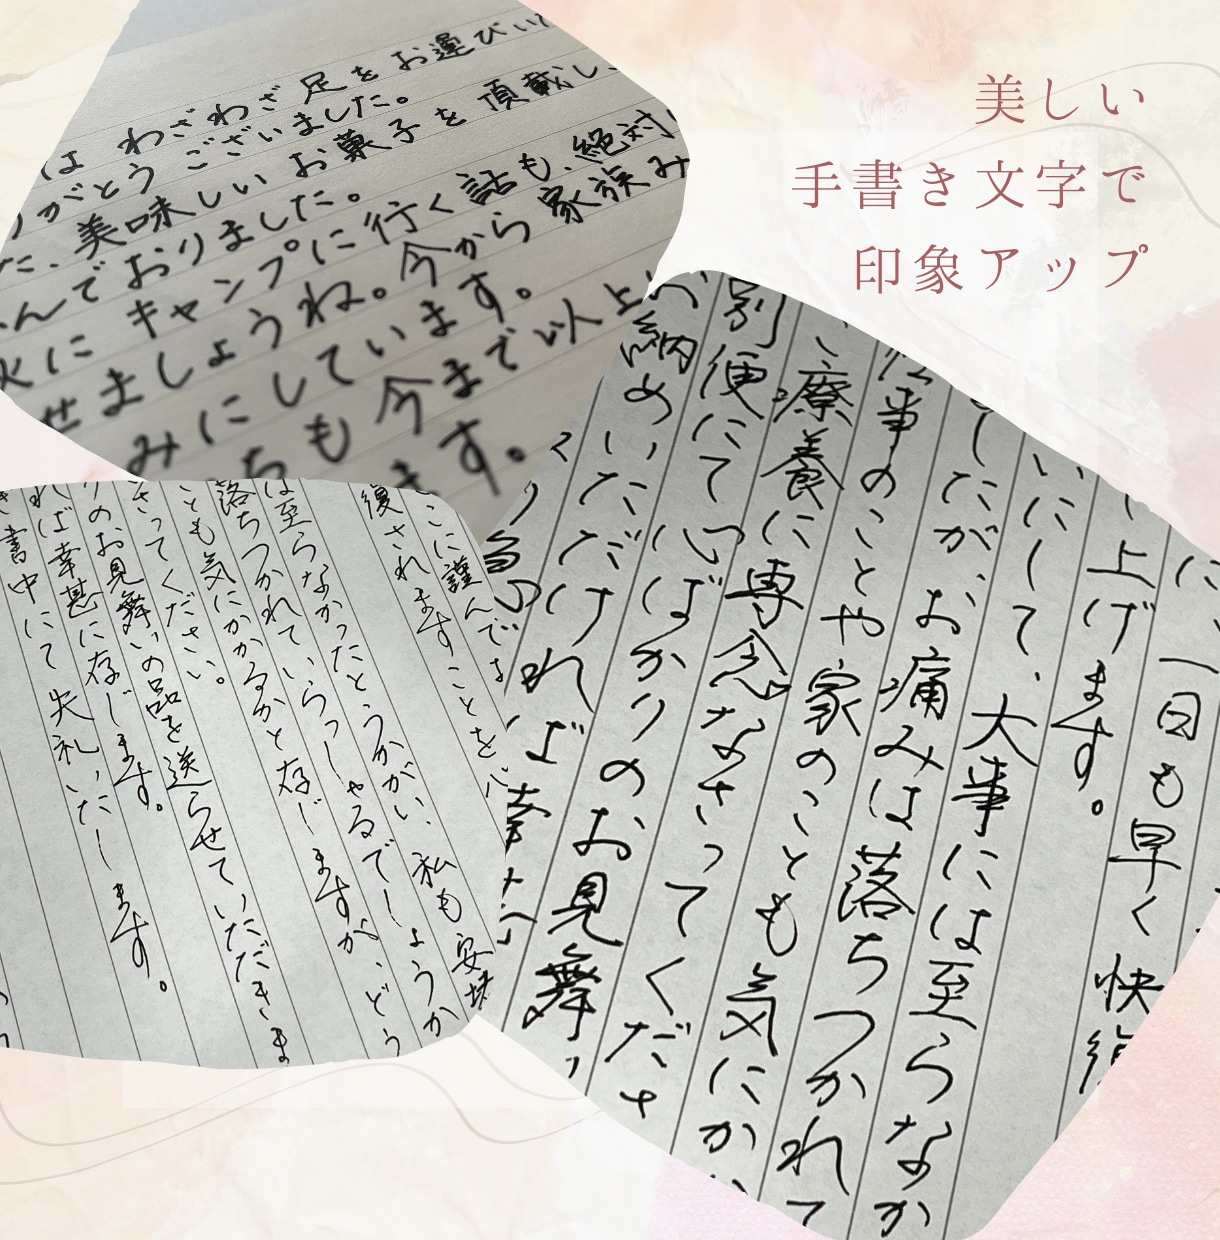 美しい
手書き文字で
印象アップ
は わざわざ 足を お運びい
がとう ございました。
た、美味しい お菓子を 頂戴し、
んでおりました。
火に キャンプに 行く話も、絶対
せましょうね。今から 家族み
みにしています。
ちも 今まで以上
ます。
に、一日も早く快復
上げます。
いにして、大事には至らなか
したが、お痛みは落ちつかれて
仕事のことや家のことも気にか
療養に専念なさってくださ
別便にて 心ばかりのお見舞い
納めいただければ幸
こに謹んでは
復されますことを心
は至らなかったとうかがい、私も安堵
落ちつかれていらっしゃるでしょうか
ことも気にかかるかと存じますが、どう
さってください。
りのお見舞いの品を送らせていただきま
れば幸甚に存じます。
書中にて失礼いたします。